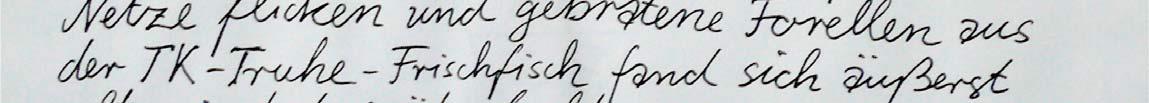 Netze flicken und gebratene Forellen aus
der TK-Truhe-Frischfisch fand sich äußerst